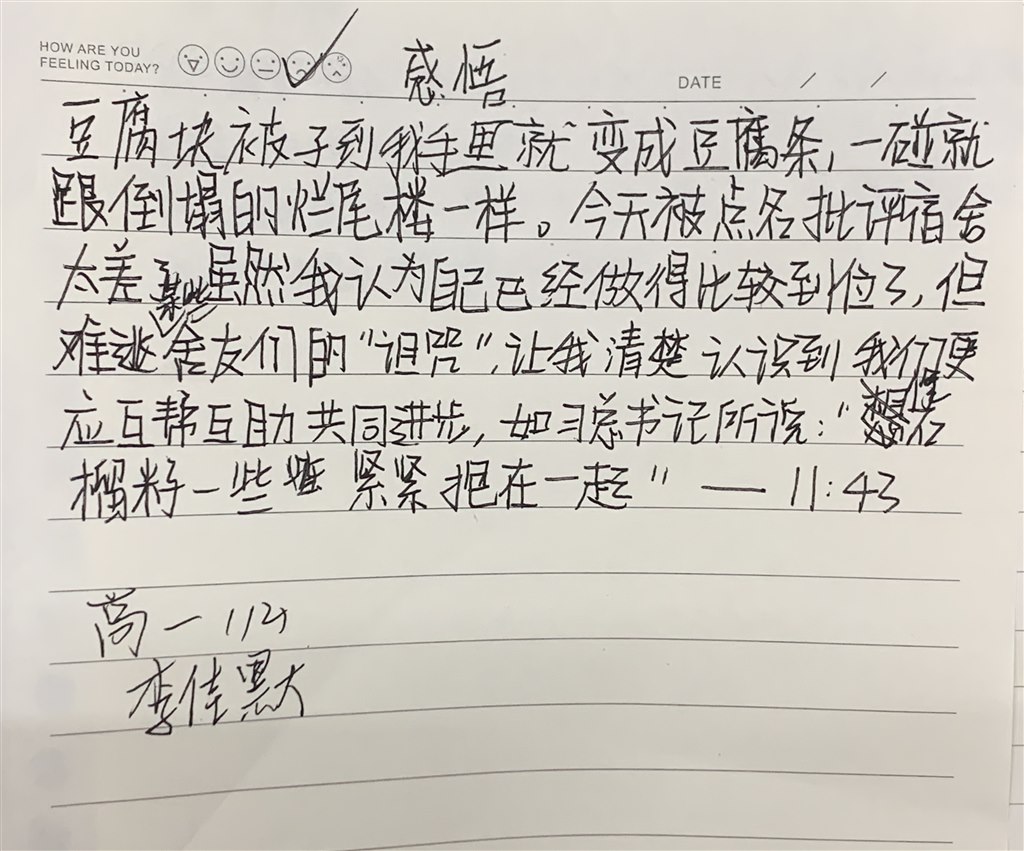 HOW ARE YOU
FEELING TODAY?
感悟
DATE / /
豆腐块被子到我手里就变成豆腐条,一碰就
跟倒塌的烂尾楼一样。今天被点名批评宿舍
太差了虽然我认为自己已经做得比较到位了,但
难逃某些舍友们的“诅咒”,让我清楚认识到我们更
应互帮互助共同进步,如习总书记所说:“像石
榴籽一些 紧紧抱在一起” — 11:43
高一
李佳默